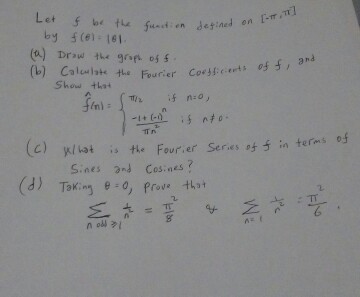 Let f be the function defined on [-π,π]
by f(θ) = |θ|.
(a) Draw the graph of f.
(b) Calculate the Fourier Coefficients of f, and
Show that
f̂(n) = { π/2 if n=0,
(-1+(-1)^n)/(πn²) if n≠0.
(c) What is the Fourier Series of f in terms of
Sines and Cosines?
(d) Taking θ=0, prove that
∑_{n odd ≥1} 1/n² = π²/8 & ∑_{n=1} 1/n² = π²/6.